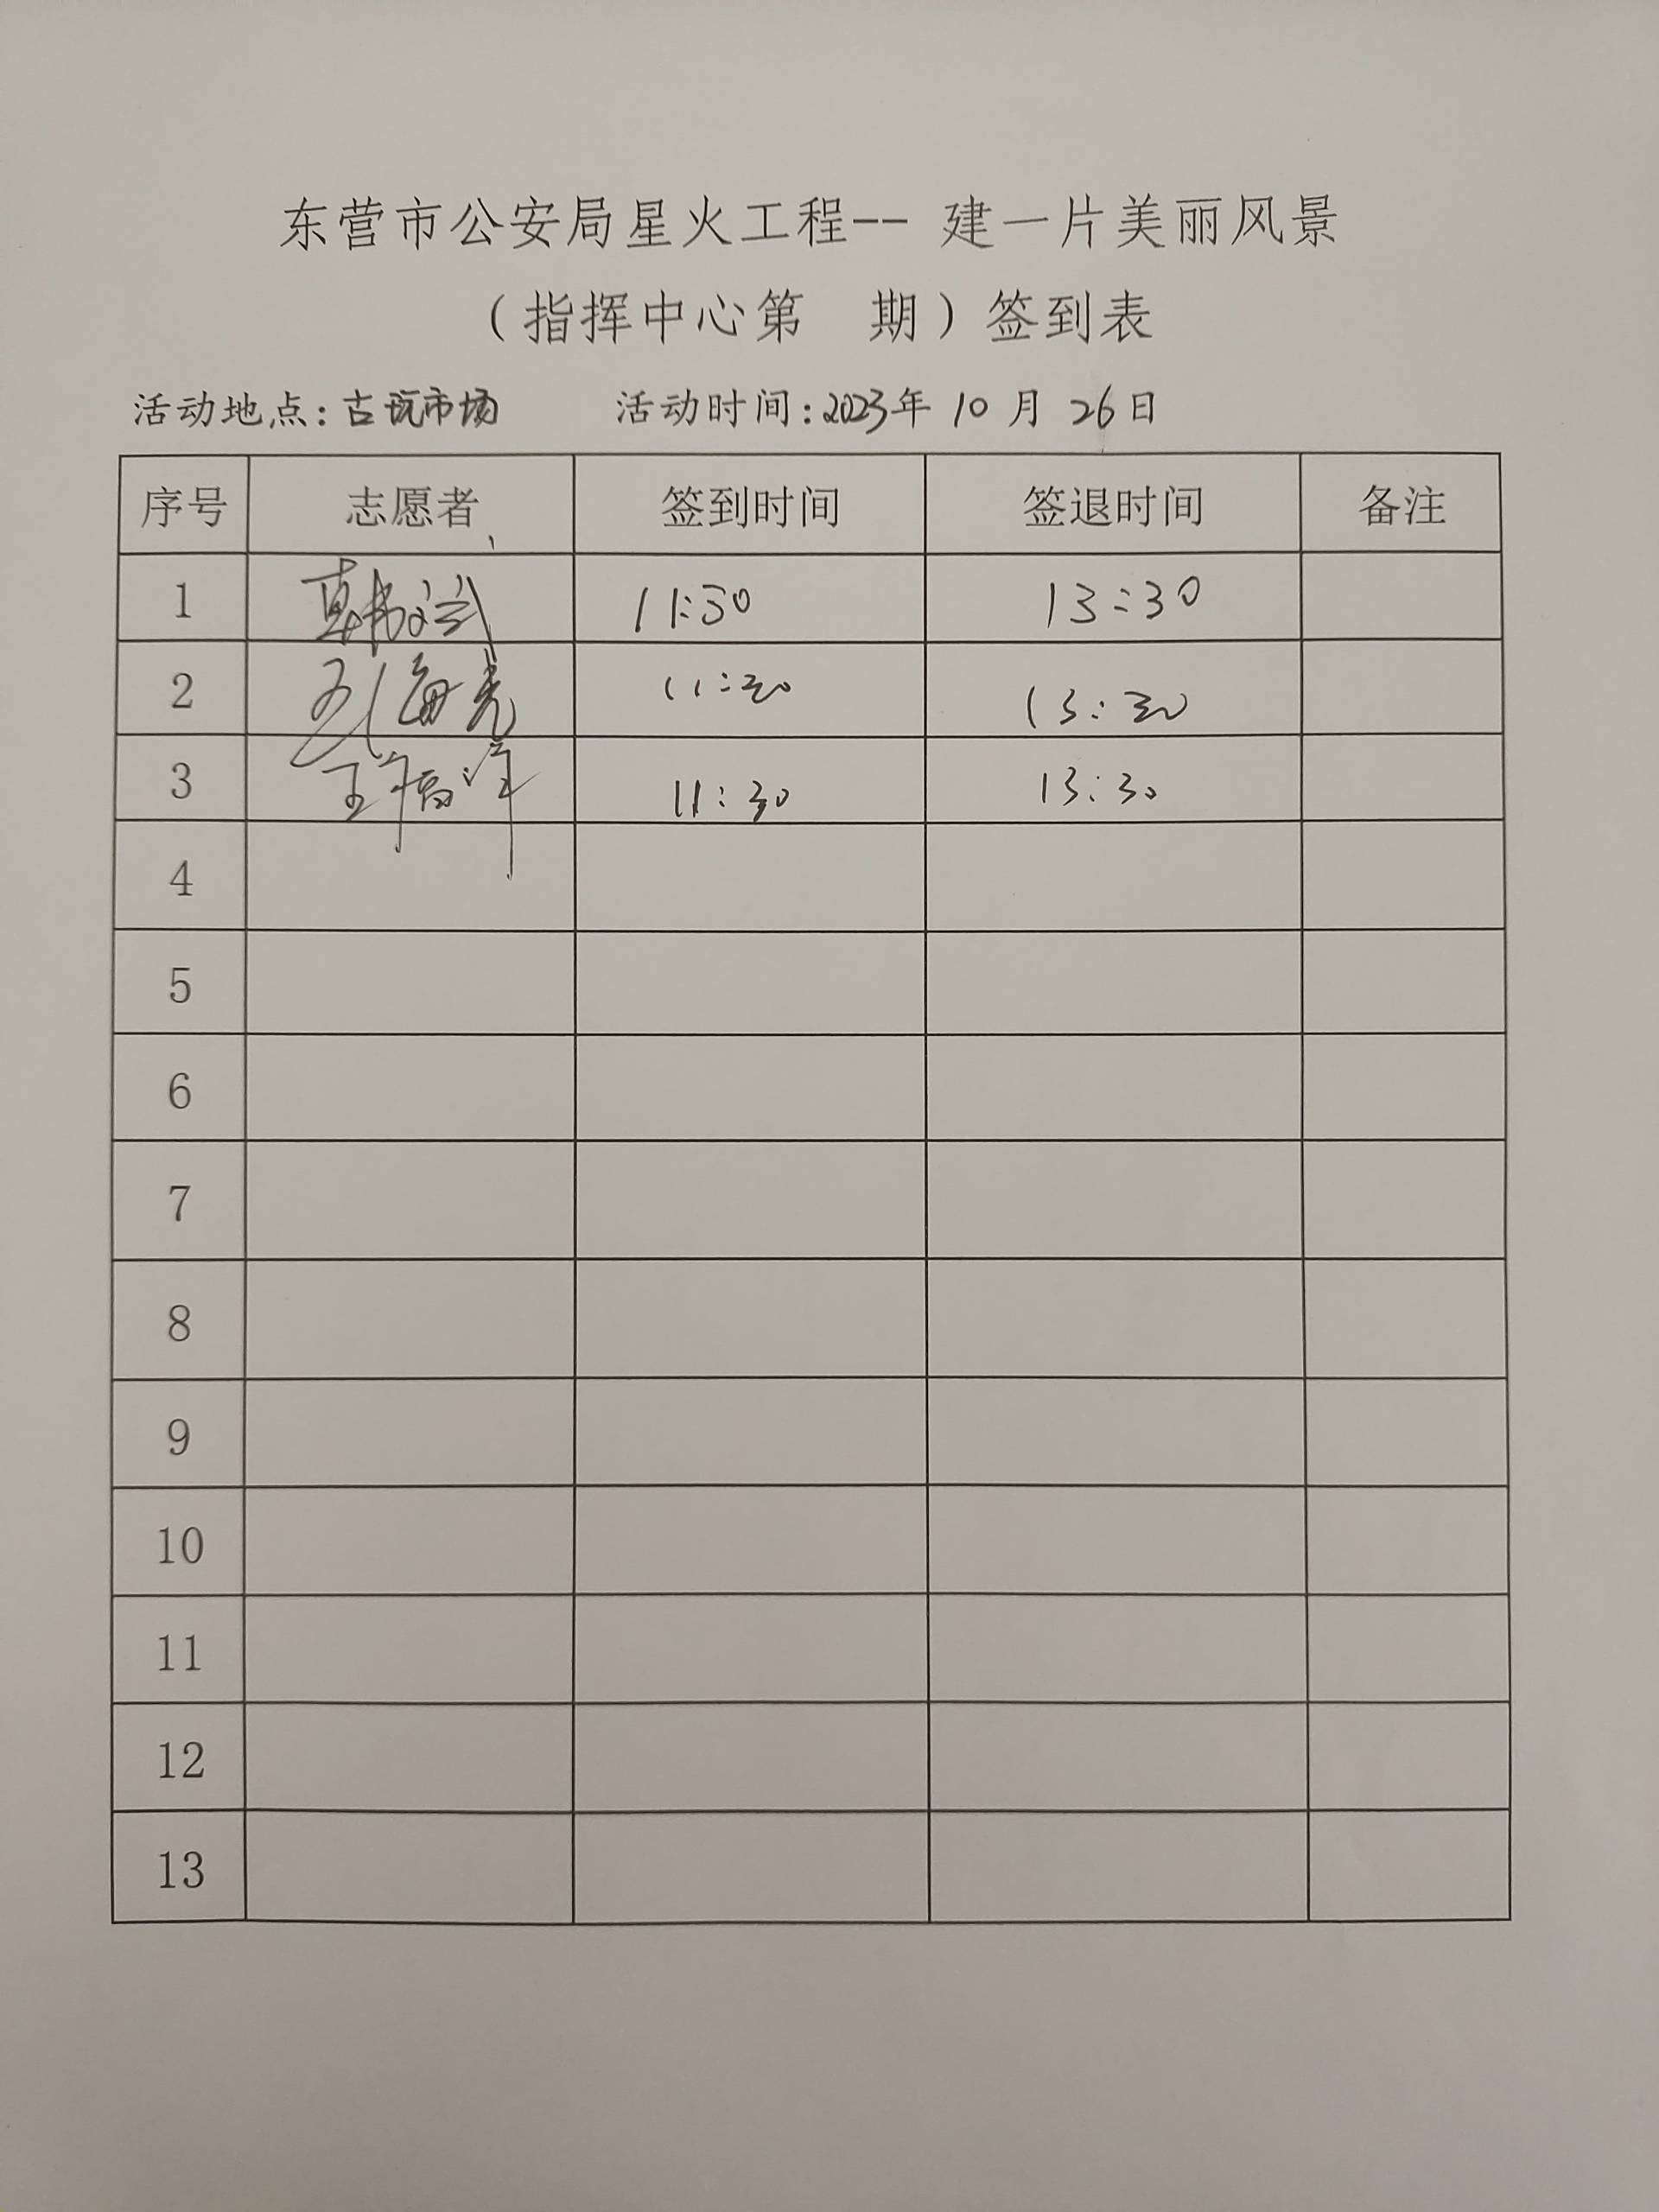 东营市公安局星火工程-- 建一片美丽风景
(指挥中心第 期)签到表
活动地点:古玩市场 活动时间:2023年 10 月 26日
序号 志愿者 签到时间 签退时间 备注
1 11:30 13:30
2 11:30 13:30
3 11:30 13:30
4
5
6
7
8
9
10
11
12
13